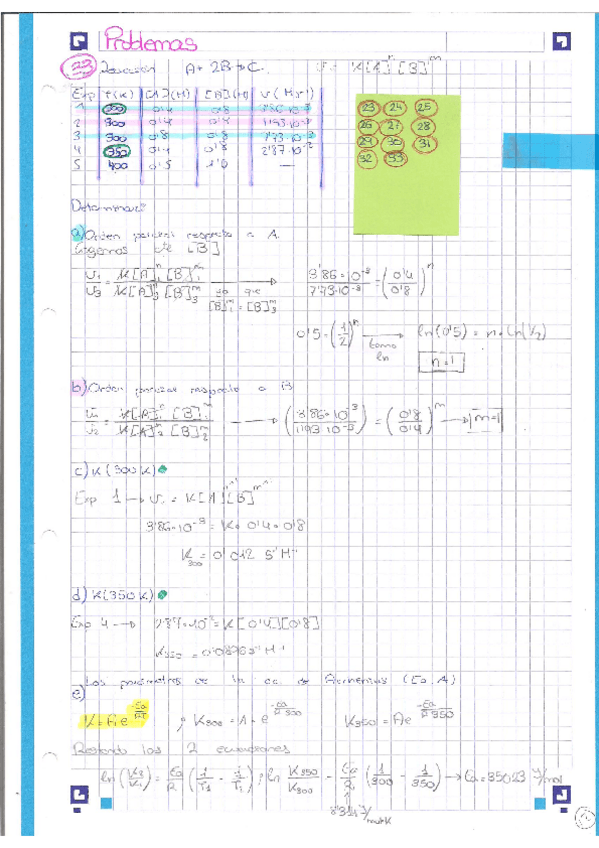 Problemas
23 Reacción A + 2B → C. v = K[A]ⁿ[B]ᵐ
Exp T(K) [A](M) [B](M) v(M s⁻¹)
1 300 0'4 0'8 3'86·10⁻³
2 300 0'4 0'4 1'93·10⁻³
3 300 0'8 0'8 7'73·10⁻³
4 350 0'4 0'8 2'87·10⁻²
5 400 0'5 —
23 24 25
26 27 28
29 30 31
32 33
Determinar:
a) Orden parcial respecto a A.
cte [B]
v₁/v₃ = K[A]₁ⁿ[B]₁ᵐ / K[A]₃ⁿ[B]₃ᵐ → ya que [B]₁ᵐ = [B]₃ᵐ 3'86·10⁻³/7'73·10⁻³ = (0'4/0'8)ⁿ
0'5 = (1/2)ⁿ → tomo ln ln(0'5) = n · ln(1/2)
n = 1
b) Orden parcial respecto a B
v₁/v₂ = K[A]₁ⁿ[B]₁ᵐ / K[A]₂ⁿ[B]₂ᵐ → (3'86·10⁻³/1'93·10⁻³) = (0'8/0'4)ᵐ → m=1
c) K(300K)
Exp 1 → v₁ = K[A]ⁿ[B]ᵐ
3'86·10⁻³ = K · 0'4 · 0'8
K₃₀₀ = 0'012 s⁻¹ M⁻¹
d) K(350K)
Exp 4 → 2'87·10⁻² = K[0'4][0'8]
K₃₅₀ = 0'0896 s⁻¹ M⁻¹
e) Los parámetros de la ec. de Arrhenius (Ea, A)
K = A e^(-Ea/RT) ; K₃₀₀ = A · e^(-Ea/R·300) K₃₅₀ = A e^(-Ea/R·350)
Restando las 2 ecuaciones
ln(K₂/K₁) = Ea/R (1/T₁ - 1/T₂) ; ln K₃₅₀/K₃₀₀ = Ea/R (1/300 - 1/350) → Ea = 35023 J/mol
8'314 J/mol·K